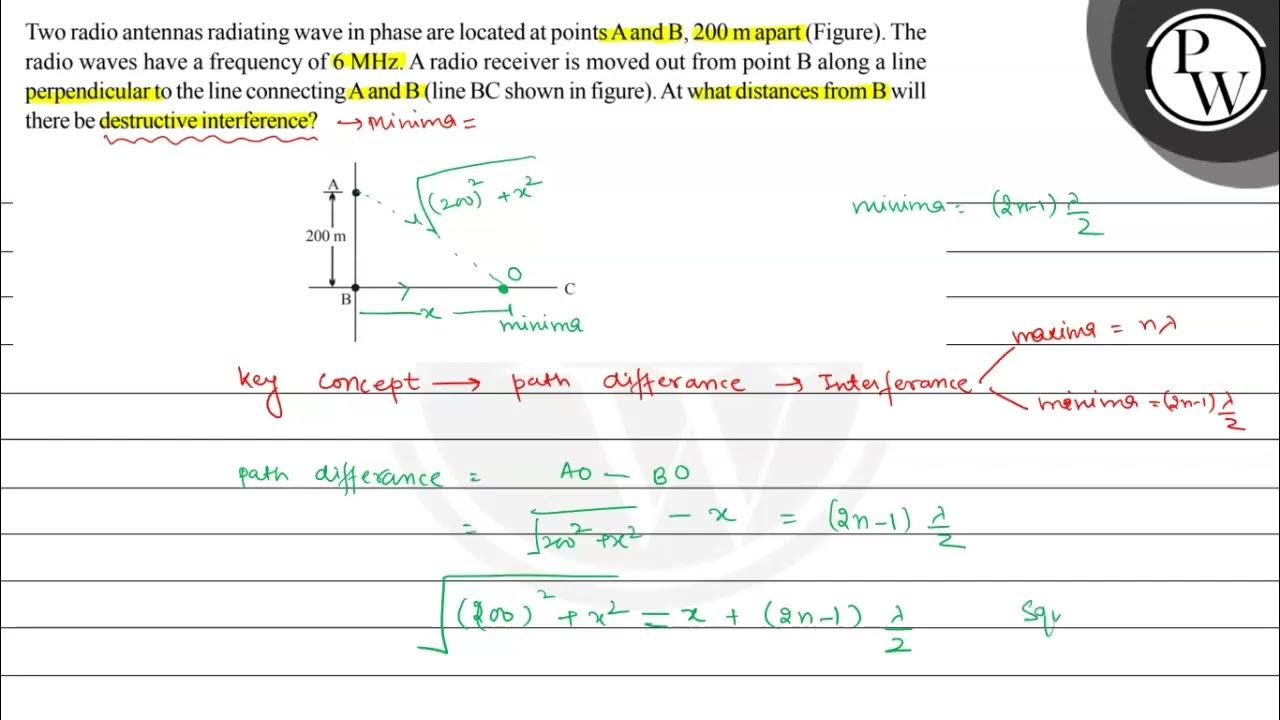 Two radio antennas radiating wave in phase are located at points A and B, 200 m apart (Figure). The
radio waves have a frequency of 6 MHz. A radio receiver is moved out from point B along a line
perpendicular to the line connecting A and B (line BC shown in figure). At what distances from B will
there be destructive interference? → Minima =
PW
A
√(200)² + x²
minima = (2n-1) λ/2
200 m
O
B
x
C
minima
maxima = nλ
Key concept → path differance → Interferance
minima = (2n-1) λ/2
path differance = AO – BO
= √200² + x² - x = (2n-1) λ/2
√(200)² + x² = x + (2n-1) λ/2 Squ